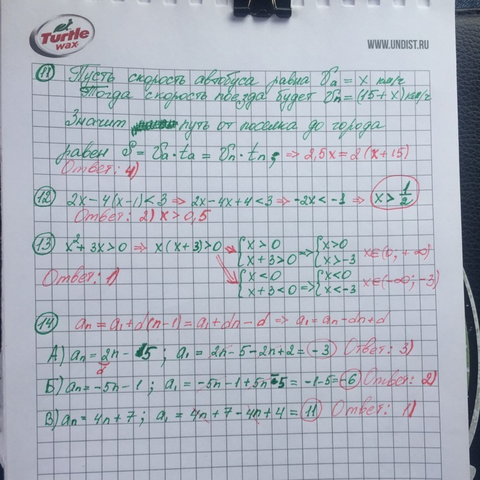 Turtle wax
WWW.UNDIST.RU
11 Пусть скорость автобуса равна Vа = x км/ч
Тогда скорость поезда будет Vп = (15 + x) км/ч
Значит путь от поселка до города
равен S = Vа · tа = Vп · tп; ⇒ 2,5x = 2(x + 15)
Ответ: 4)
12 2x - 4(x - 1) < 3 ⇒ 2x - 4x + 4 < 3 ⇒ -2x < -1 ⇒ x > 1/2
Ответ: 2) x > 0,5
13 x² + 3x > 0 ⇒ x(x + 3) > 0 ⇒ {x > 0 x + 3 > 0 ⇒ {x > 0 x > -3 x ∈ (0; +∞)
{x < 0 x + 3 < 0 ⇒ {x < 0 x < -3 x ∈ (-∞; -3)
Ответ: 1)
14 aₙ = a₁ + d(n - 1) = a₁ + dn - d ⇒ a₁ = aₙ - dn + d
А) aₙ = 2n - 5; a₁ = 2n - 5 - 2n + 2 = -3 Ответ: 3)
d
Б) aₙ = -5n - 1; a₁ = -5n - 1 + 5n - 5 = -1 - 5 = -6 Ответ: 2)
В) aₙ = 4n + 7; a₁ = 4n + 7 - 4n + 4 = 11 Ответ: 1)